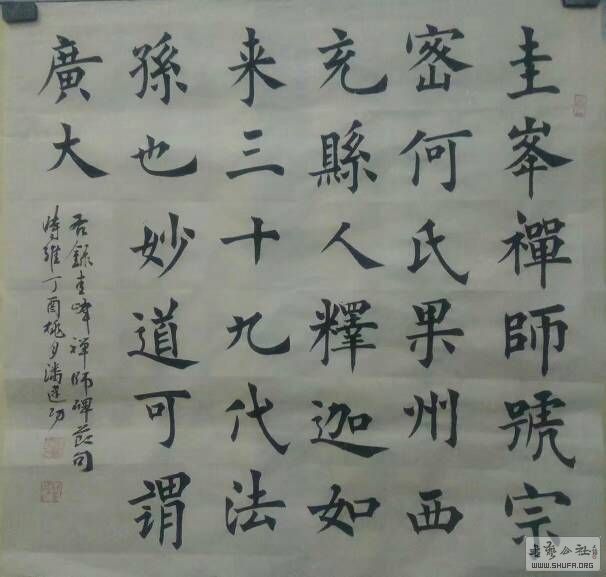 圭峯禪師號宗
密何氏果州西
充縣人釋迦如
来三十九代法
孫也妙道可謂
廣大
右錄圭峰禪師碑節句
時維丁酉桃月潘建功
書法公社
WWW.SHUFA.ORG